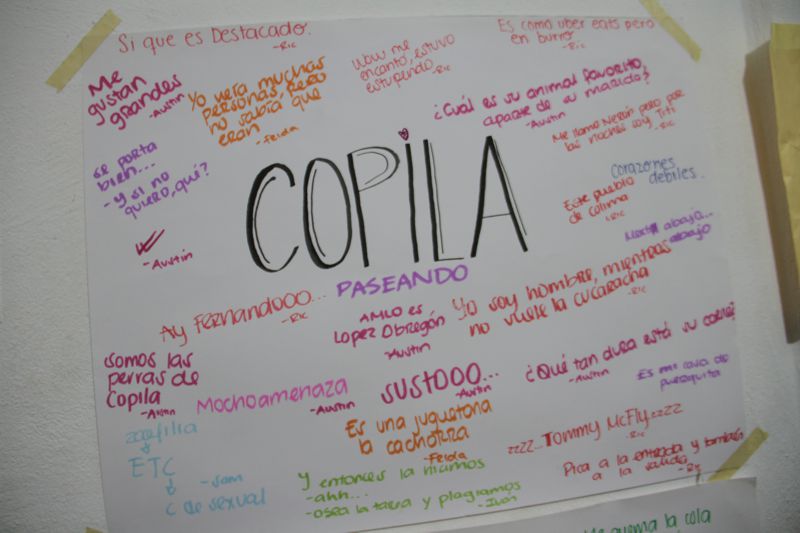 Si que es Destacado.
-Ric
Me
gustan
grandes
-Austin
Yo vera muchas
personas, pero
no sabia que
eran
-Feida
Wow me
encantó, estuvo
estupendo
-Ric
Es como uber eats pero
en burro
-Ric
¿Cuál es su animal favorito,
aparte de su marido?
-Austin
Me llamo Nerón pero por
las noches soy Titi
-Ric
se porta
bien...
- y si no
quiero, qué?
Corazones
debiles.
Este pueblo
de colima
-Ric
COPILA
-Austin
abajo...
abajo
PASEANDO
Ay Fernandooo...
-Ric
AMLO es
Lopez Obregón
-Austin
Yo soy hombre, mientras
no vuele la cucaracha
-Ric
somos las
perras de
Copila
-Austin
Mochoamenaza
-Austin
sustooo...
-Austin
¿Qué tan dura está su carne?
-Austin
Es mi casa de
zoofilia
ETC
-Sam
C de sexual
Es una juguetona
la cachorra
-Feida
zzzz...Tommy McFly zzzz
-Ric
Y entonces la hicimos
-ahh...
-osea la tarea y plagiamos
-Iván
Pica a la entrada y también
a la salida
-Ric
quema la cola